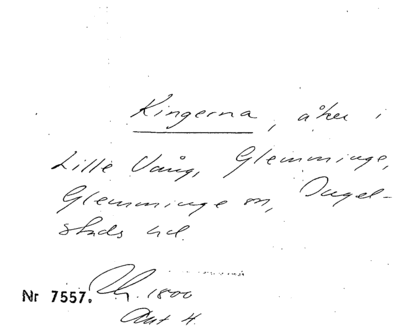 Kingerna, åker i
Lille Vång, Glemminge,
Glemminge sn, Ingel-
stads hd.
Nr 7557. 1800
Akt 4.